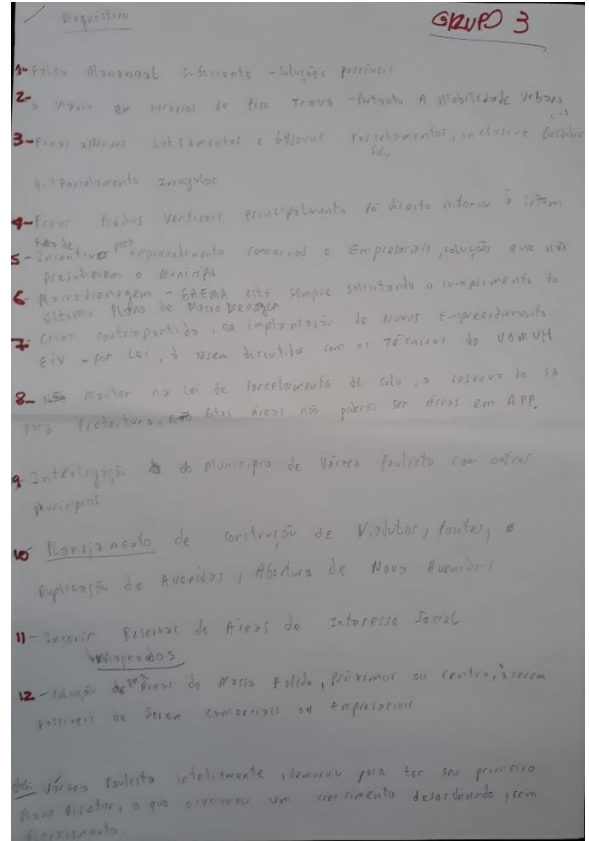 Diagnóstico
GRUPO 3
1- Falta Manancial Suficiente - Soluções possíveis
2- o Viário em horários de pico Trava - Portanto A Mobilidade Urbana
3- Frear a)Novos Loteamentos e b)Novos Parcelamentos, inclusive
Solo
Parcelamento Irregular
4- Frear Prédios Verticais principalmente
5- Incentivo para empreendimento Comercial e Empresariais, soluções que não
prejudiquem o Município
6- Macrodrenagem - GAEMA está sempre solicitando o cumprimento do
último Plano de Macro Drenagem
7- Criar contrapartida, na implantação de Novos Empreendimento
EIV - por Lei, à serem discutida com os Técnicos do
8- Manter na Lei de Parcelamento de solo, a reserva de 5%
para Prefeitura, Estas Áreas não poderão ser Áreas em APP.
9- Interligação do Município de Várzea Paulista com outros
Municípios
10- Planejamento de construção de Viadutos, Pontes, e
Duplicação de Avenidas, Abertura de Nova Avenidas
11- Inserir Reservas de Áreas de Interesse Social
Mapeados
12- solução Áreas da Massa Falida, Próximos ao Centro, à serem
possíveis de Serem Comerciais ou Empresariais
Obs: Várzea Paulista infelizmente, demorou para ter seu primeiro
Plano Diretor, o que ocasionou um crescimento desordenado, sem
Planejamento.